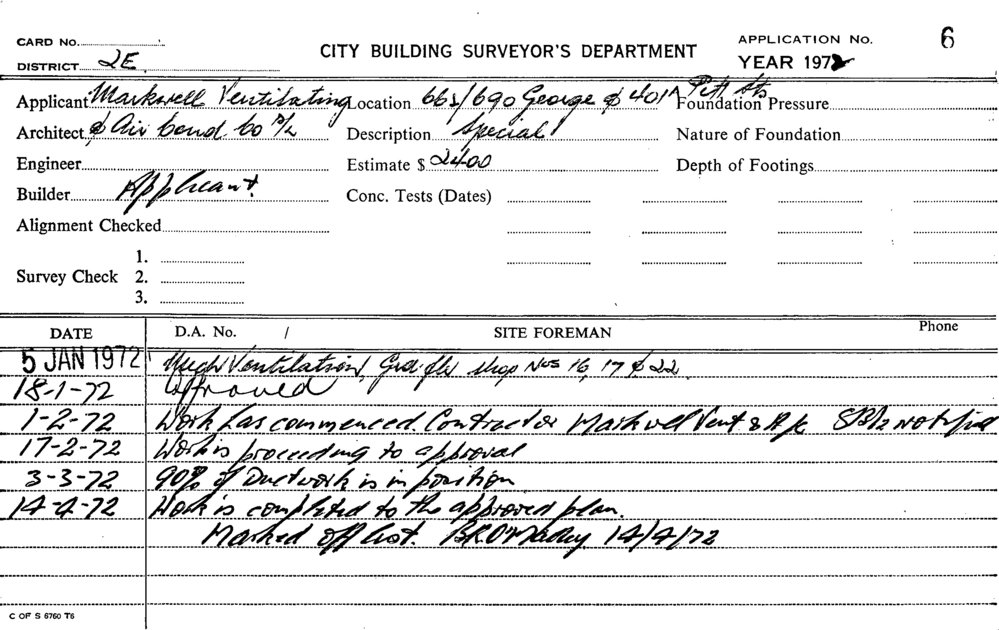 CARD No. APPLICATION No. 6
DISTRICT 2E CITY BUILDING SURVEYOR'S DEPARTMENT YEAR 1972
Applicant Markwell Ventilating Location 661/690 George & 401A Pitt Sts Foundation Pressure
Architect & Air Cond. Co P/L Description Special Nature of Foundation
Engineer Estimate $ 2400 Depth of Footings
Builder Applicant. Conc. Tests (Dates)
Alignment Checked
1.
Survey Check 2.
3.
DATE D.A. No. / SITE FOREMAN Phone
5 JAN 1972 Mech Ventilation, Grd flr shop Nos 16, 17 & 22
18-1-72 Approved
1-2-72 Work has commenced. Contractor Markwell Vent & A/c notified
17-2-72 Work is proceeding to approval
3-3-72 90% of Ductwork is in position
14-4-72 Work is completed to the approved plan.
Marked off list. 14/4/72
C OF S 6760 T6